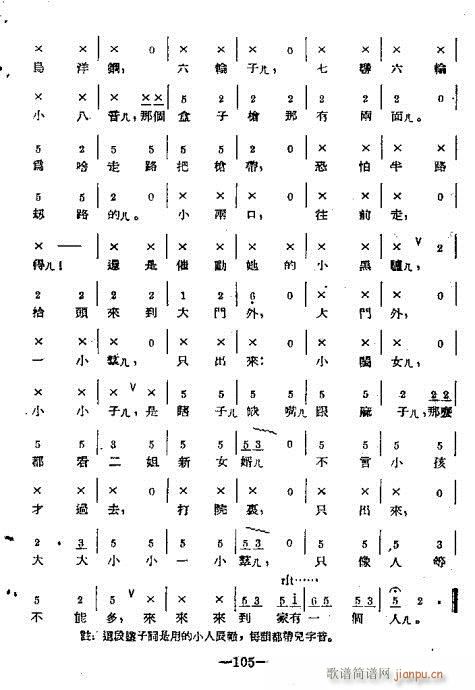 × × | × 0 | × × | × 0 | × × | × ×
烏洋鋼，六輪子儿，七響六輪
× × | × ×× 5 | 2 2 | 2 2 | 2 0
小八音儿，那個盒子槍那有兩面儿。
5 2 | 2 5 | 5 2 | 2 0 | 5 5 | 5 5
爲啥走路把槍帶，恐怕半路
5 5 | 2 0 | × × | × 0 | × × | × 0
刼路的儿。小兩口，往前走，
× — | × × | × × | × × | × × ∨ | 2
得儿！還是催動她的小黑驢儿，
2 2 | 2 2 | 1 2 | 6 0 | × × | × 0
抬頭來到大門外，大門外，
× × | × 0 | × × | × 0 | × × | × 0
一小羣儿，只出來：小閨女儿，
× × | × 5 | 5 5 | 5 5 | 5 5 | 2 22
小小子儿，是瞎子儿豁嘴跟麻子儿，那麼
5 5 | 3 5 | 5 5 | 53 0 | 5 5 | 5 5
都看二姐新女婿儿不言小孩
× × | × 0 | × × | × 0 | × × | × 0
才過去，打院裏，只出來，
2 3 | 5 5 | 5 5 | 53 0 | 5 5 | 5 5
大大小小一小羣儿，只像人等
rit……
5 2 | 5 ∨ × | × × | 53 5i | 65 5 | i 0
不能多，來來來到家有一個人儿。
註：這段讓子詞是用的小人辰轍，每韻都帶兒字音。
—105—
歌谱简谱网
jianpu.cn